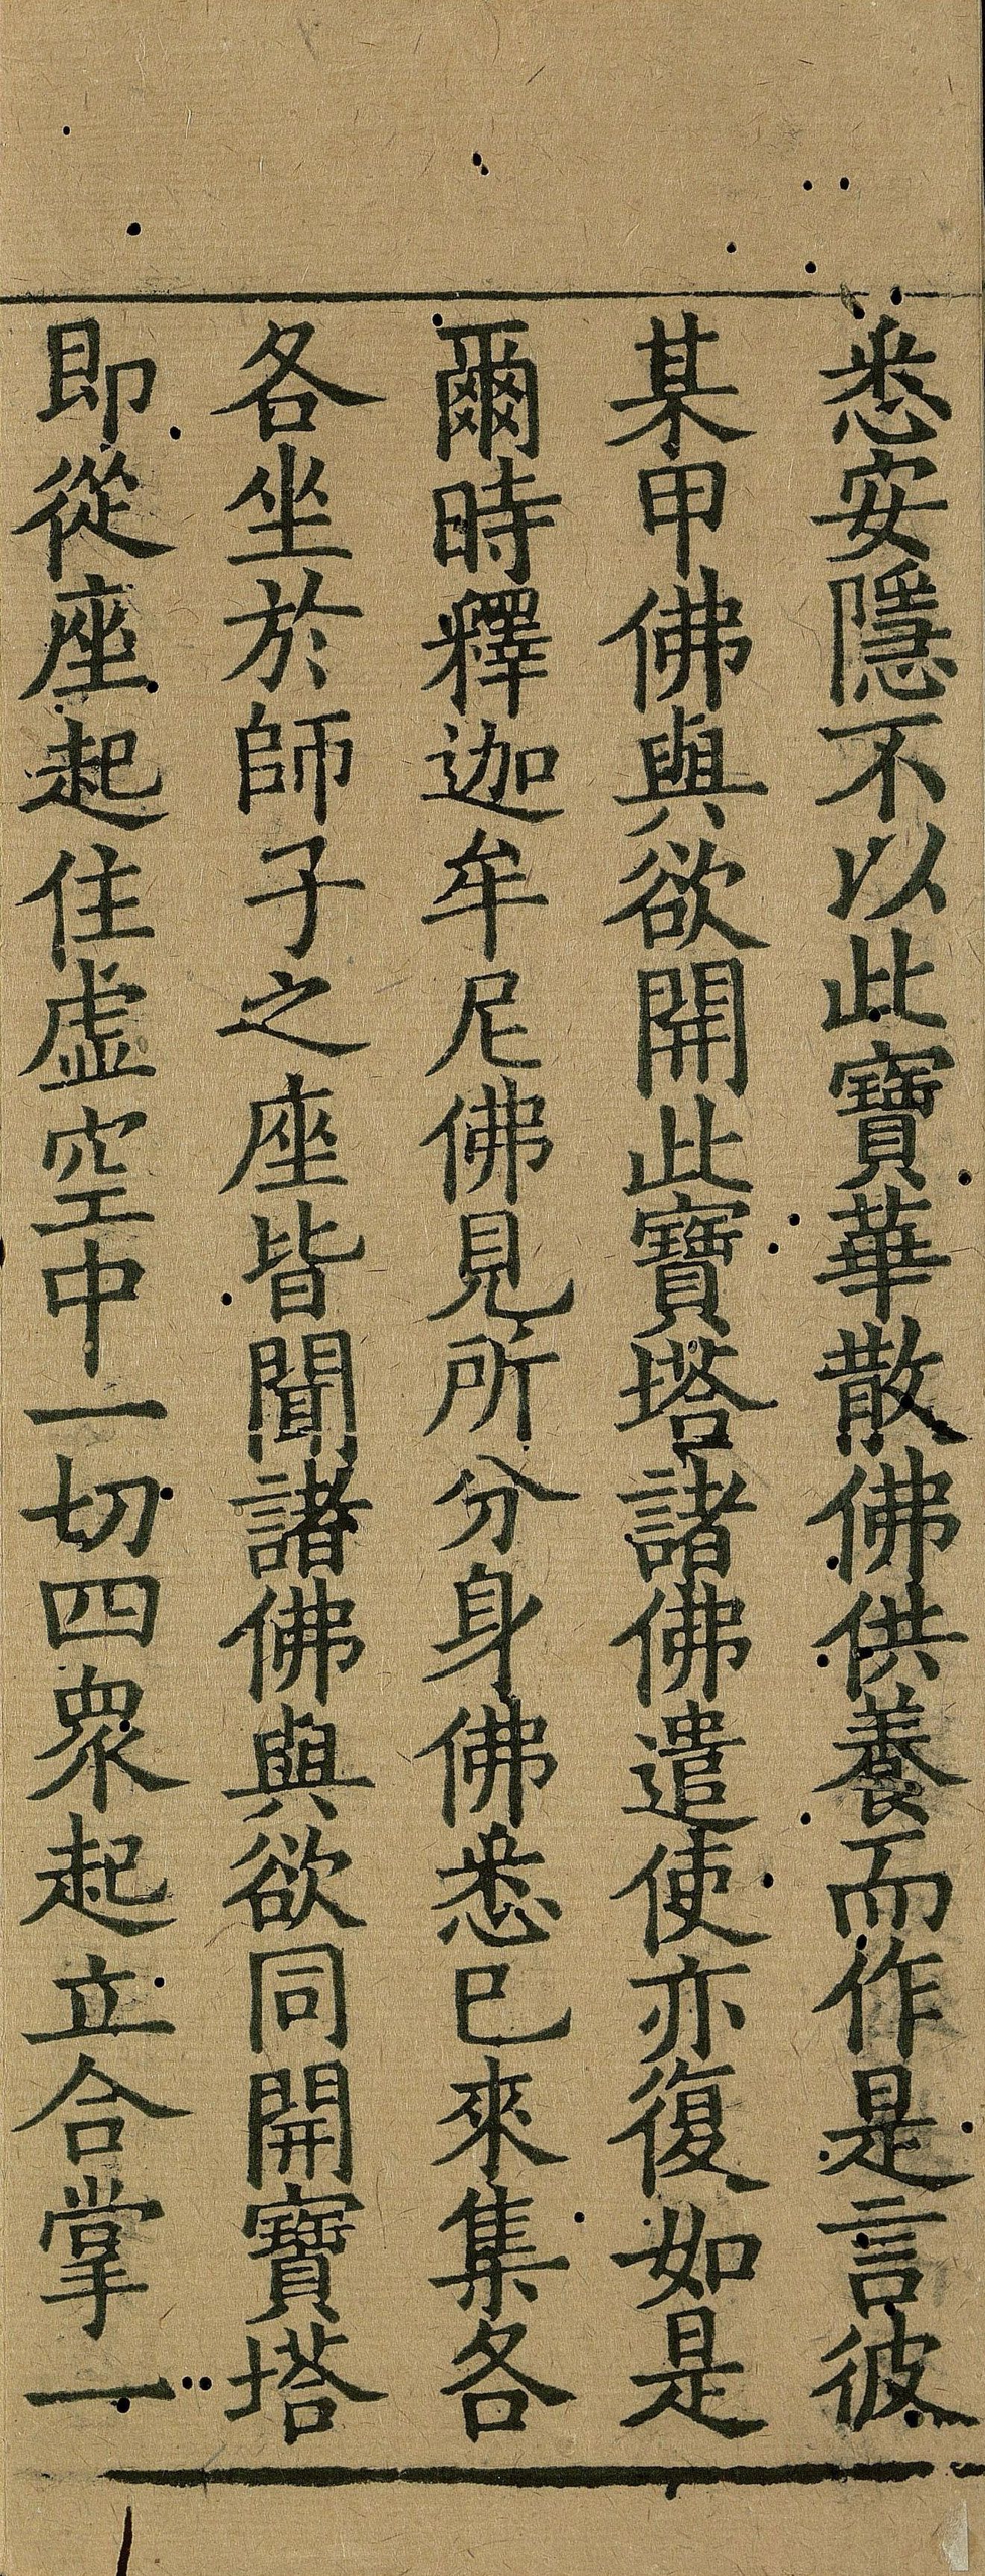 悉安隱不以此寶華散佛供養而作是言彼
某甲佛與欲開此寶塔諸佛遣使亦復如是
爾時釋迦牟尼佛見所分身佛悉已來集各
各坐於師子之座皆聞諸佛與欲同開寶塔
即從座起住虛空中一切四眾起立合掌一